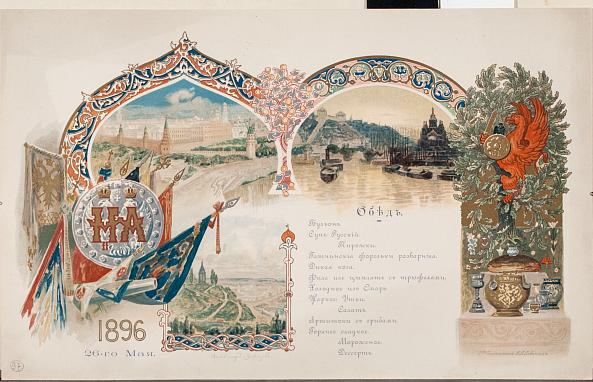 1896
26-го Мая.
Обѣдъ.
Бульонъ.
Супъ Русскій.
Пирожки.
Гатчинскія форельки разварныя.
Дикая коза.
Филе изъ цыплятъ съ трюфелями.
Холодное изъ
Жаркое Утки.
Салатъ.
Артишоки съ грибами.
Горячее сладкое.
Мороженое.
Дессертъ.